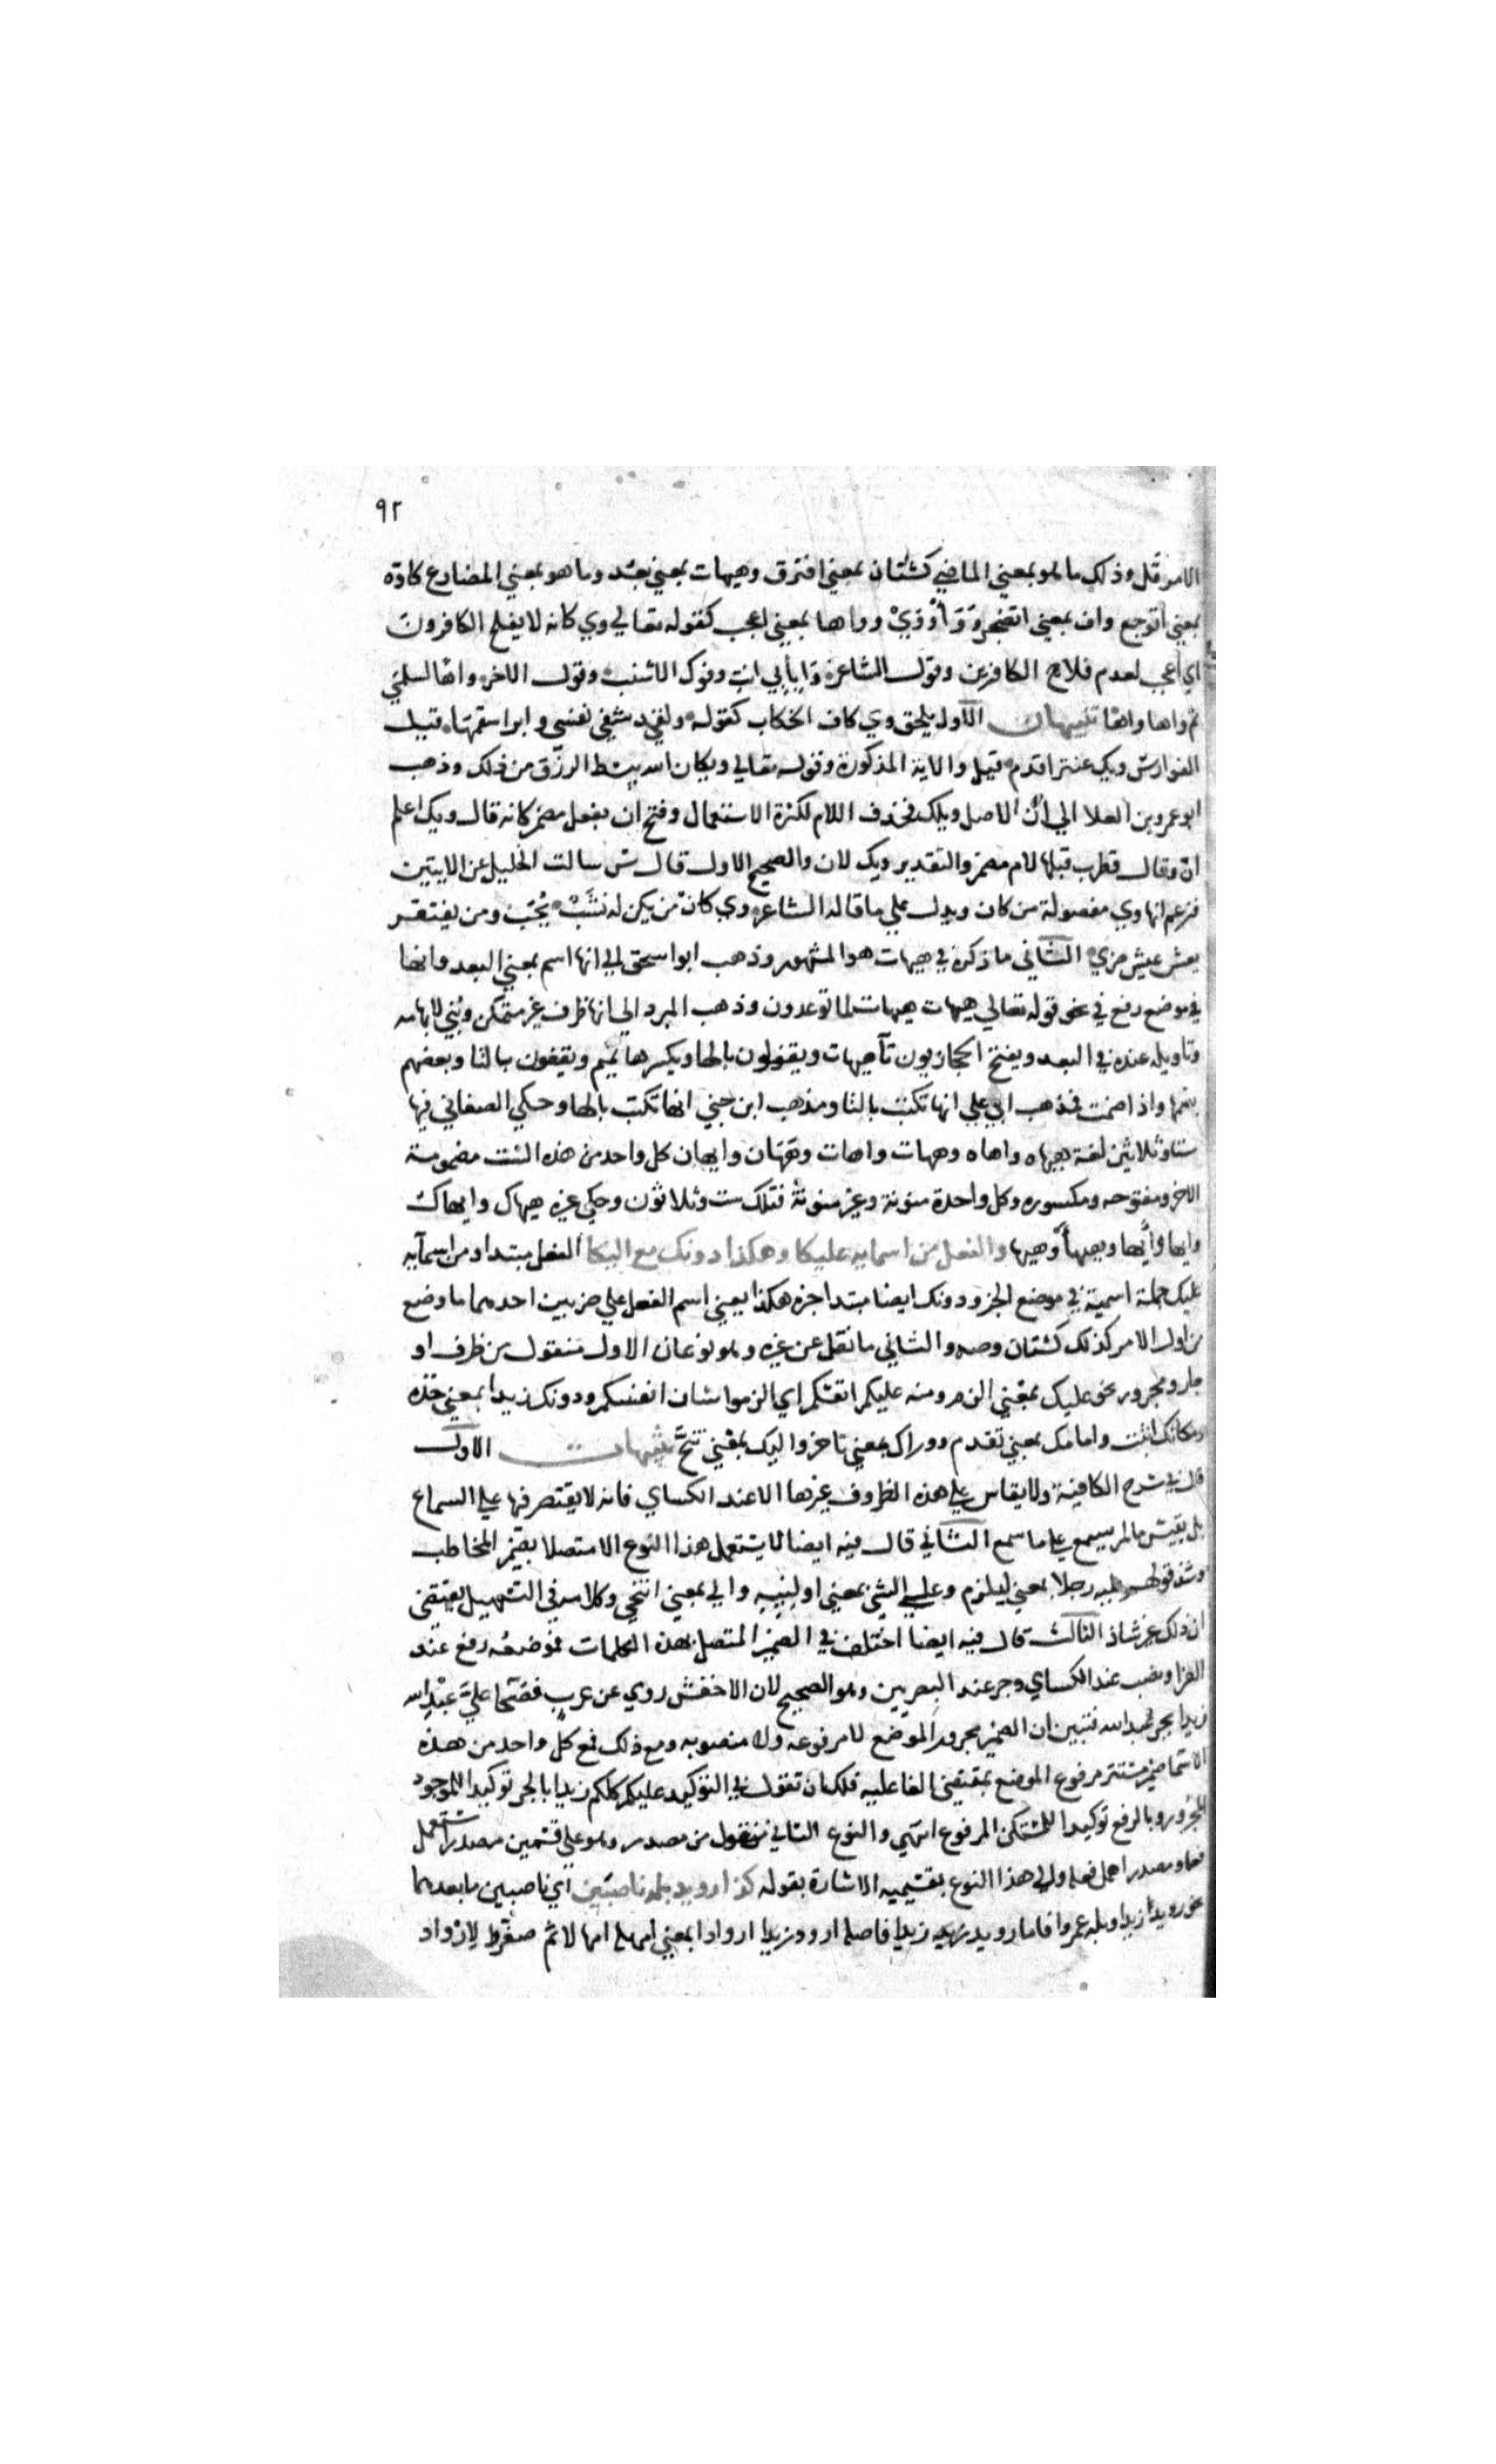 ٩٢
الامر قل وذلك ما هو بمعني الماضي كشتان بمعني افترق وهيهات بمعني بعد وما هو بمعني المضارع كاوه
بمعني اتوجع واف بمعني اتضجر و و ا و وي و واها بمعني اعجب كقوله تعالي وي كانه لا يفلح الكافرون
اي اعجب لعدم فلاح الكافرين وقول الشاعر وا بابي انت وفوك الاشنب وقول الاخر واها لسلمي
ثم واها واها تنبيهات الاول يلحق وي كاف الخطاب كقوله ولقد شفي نفسي وابرا سقمها قيل
الفوارس ويك عنتر اقدم قيل والاية المذكورة وقوله تعالي ويكان الله يبسط الرزق من ذلك وذهب
ابو عمرو بن العلا الي ان الاصل ويلك فحذف اللام لكثرة الاستعمال وفتح ان بفعل مضمر كانه قال ويك اعلم
ان وقال قطرب قبلها لام مضمر والتقدير ويك لان والصحيح الاول قال س سالت الخليل عن الايتين
فزعم انها وي مفصولة من كان ويدل علي ما قاله الشاعر وي كان من يكن له نشب يحبب ومن يفتقر
يعش عيش ضر الثاني ما ذكره في هيهات هو المشهور وذهب ابو اسحق الي انها اسم بمعني البعد وانها
في موضع رفع في نحو قوله تعالي هيهات هيهات لما توعدون وذهب المبرد الي انها ظرف غير متمكن وبني لابهامه
وتاويله عنده في البعد ويفتح الحجازيون تا هيهات ويقفون بالها ويكسرها تميم ويقفون بالتا وبعضهم
يضمها واذا ضمت فمذهب ابي علي انها تكتب بالتا ومذهب ابن جني انها تكتب بالها وحكي الصغاني فيها
ستا وثلاثين لغة هيهاه وايهاه وهيهات وايهات وهيهان وايهان كل واحد من هذه الست مضمومة
الاخر ومفتوحه ومكسوره وكل واحدة منونة وغير منونة فتلك ست وثلاثون وحكي غيره هيهاك وايهاك
وايها وايها وهيها والفعل من اسمايه عليكا وهكذا دونك مع اليكا الفعل مبتدا ومن اسمايه
عليك جملة اسمية في موضع الخبر ودونك ايضا مبتدا خبره هكذا يعني اسم الفعل علي ضربين احدهما ما وضع
من اول الامر كذلك كشتان وصه والثاني ما نقل عن غيره وهو نوعان الاول منقول من ظرف او
جار ومجرور نحو عليك بمعني الزم ومنه عليكم انفسكم اي الزموا شان انفسكم ودونك زيدا بمعني خذه
ومكانك اثبت وامامك بمعني تقدم ووراك بمعني تاخر واليك بمعني تنح تنبيهات الاول
قال في شرح الكافية ولا يقاس علي هذه الظروف غيرها الا عند الكساي فانه لا يقتصر فيها علي السماع
بل يقيس ما لم يسمع علي ما سمع الثاني قال فيه ايضا لا يستعمل هذا النوع الا متصلا بضمير المخاطب
وشذ قولهم عليه رجلا بمعني ليلزم وعلي الشي بمعني اولنيه والي بمعني انتحي وكلامه في التسهيل يقتضي
ان ذلك غير شاذ الثالث قال فيه ايضا اختلف في الضمير المتصل بهذه الكلمات فموضعه رفع عند
الفرا ونصب عند الكساي وجر عند البصريين وهو الصحيح لان الاخفش روي عن عرب فصحا علي عبد الله
زيدا بجر عبد الله فتبين ان الضمير مجرور الموضع لا مرفوعه ولا منصوبه ومع ذلك فمع كل واحد من هذه
الاسما ضمير مستتر مرفوع الموضع بمقتضي الفاعليه فلك ان تقول في التوكيد عليكم كلكم زيدا بالجر توكيدا للموجود
المجرور وبالرفع توكيدا للمستكن المرفوع انتهي والنوع الثاني منقول من مصدر وهو علي قسمين مصدر استعمل
فعله ومصدر اهمل فعله والي هذا النوع بقسميه الاشارة بقوله كذا رويد بله ناصبين اي ناصبين ما بعدهما
نحو رويد زيدا وبله عمروا فاما رويد زيدا فاصله ارود زيدا اروادا بمعني امهله امهالا ثم صغروا لارواد